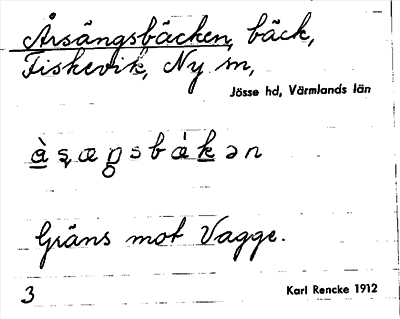 Årsängsbäcken, bäck,
Fiskevik, Ny sn,
Jösse hd, Värmlands län
Gräns mot Vagge.
3
Karl Rencke 1912